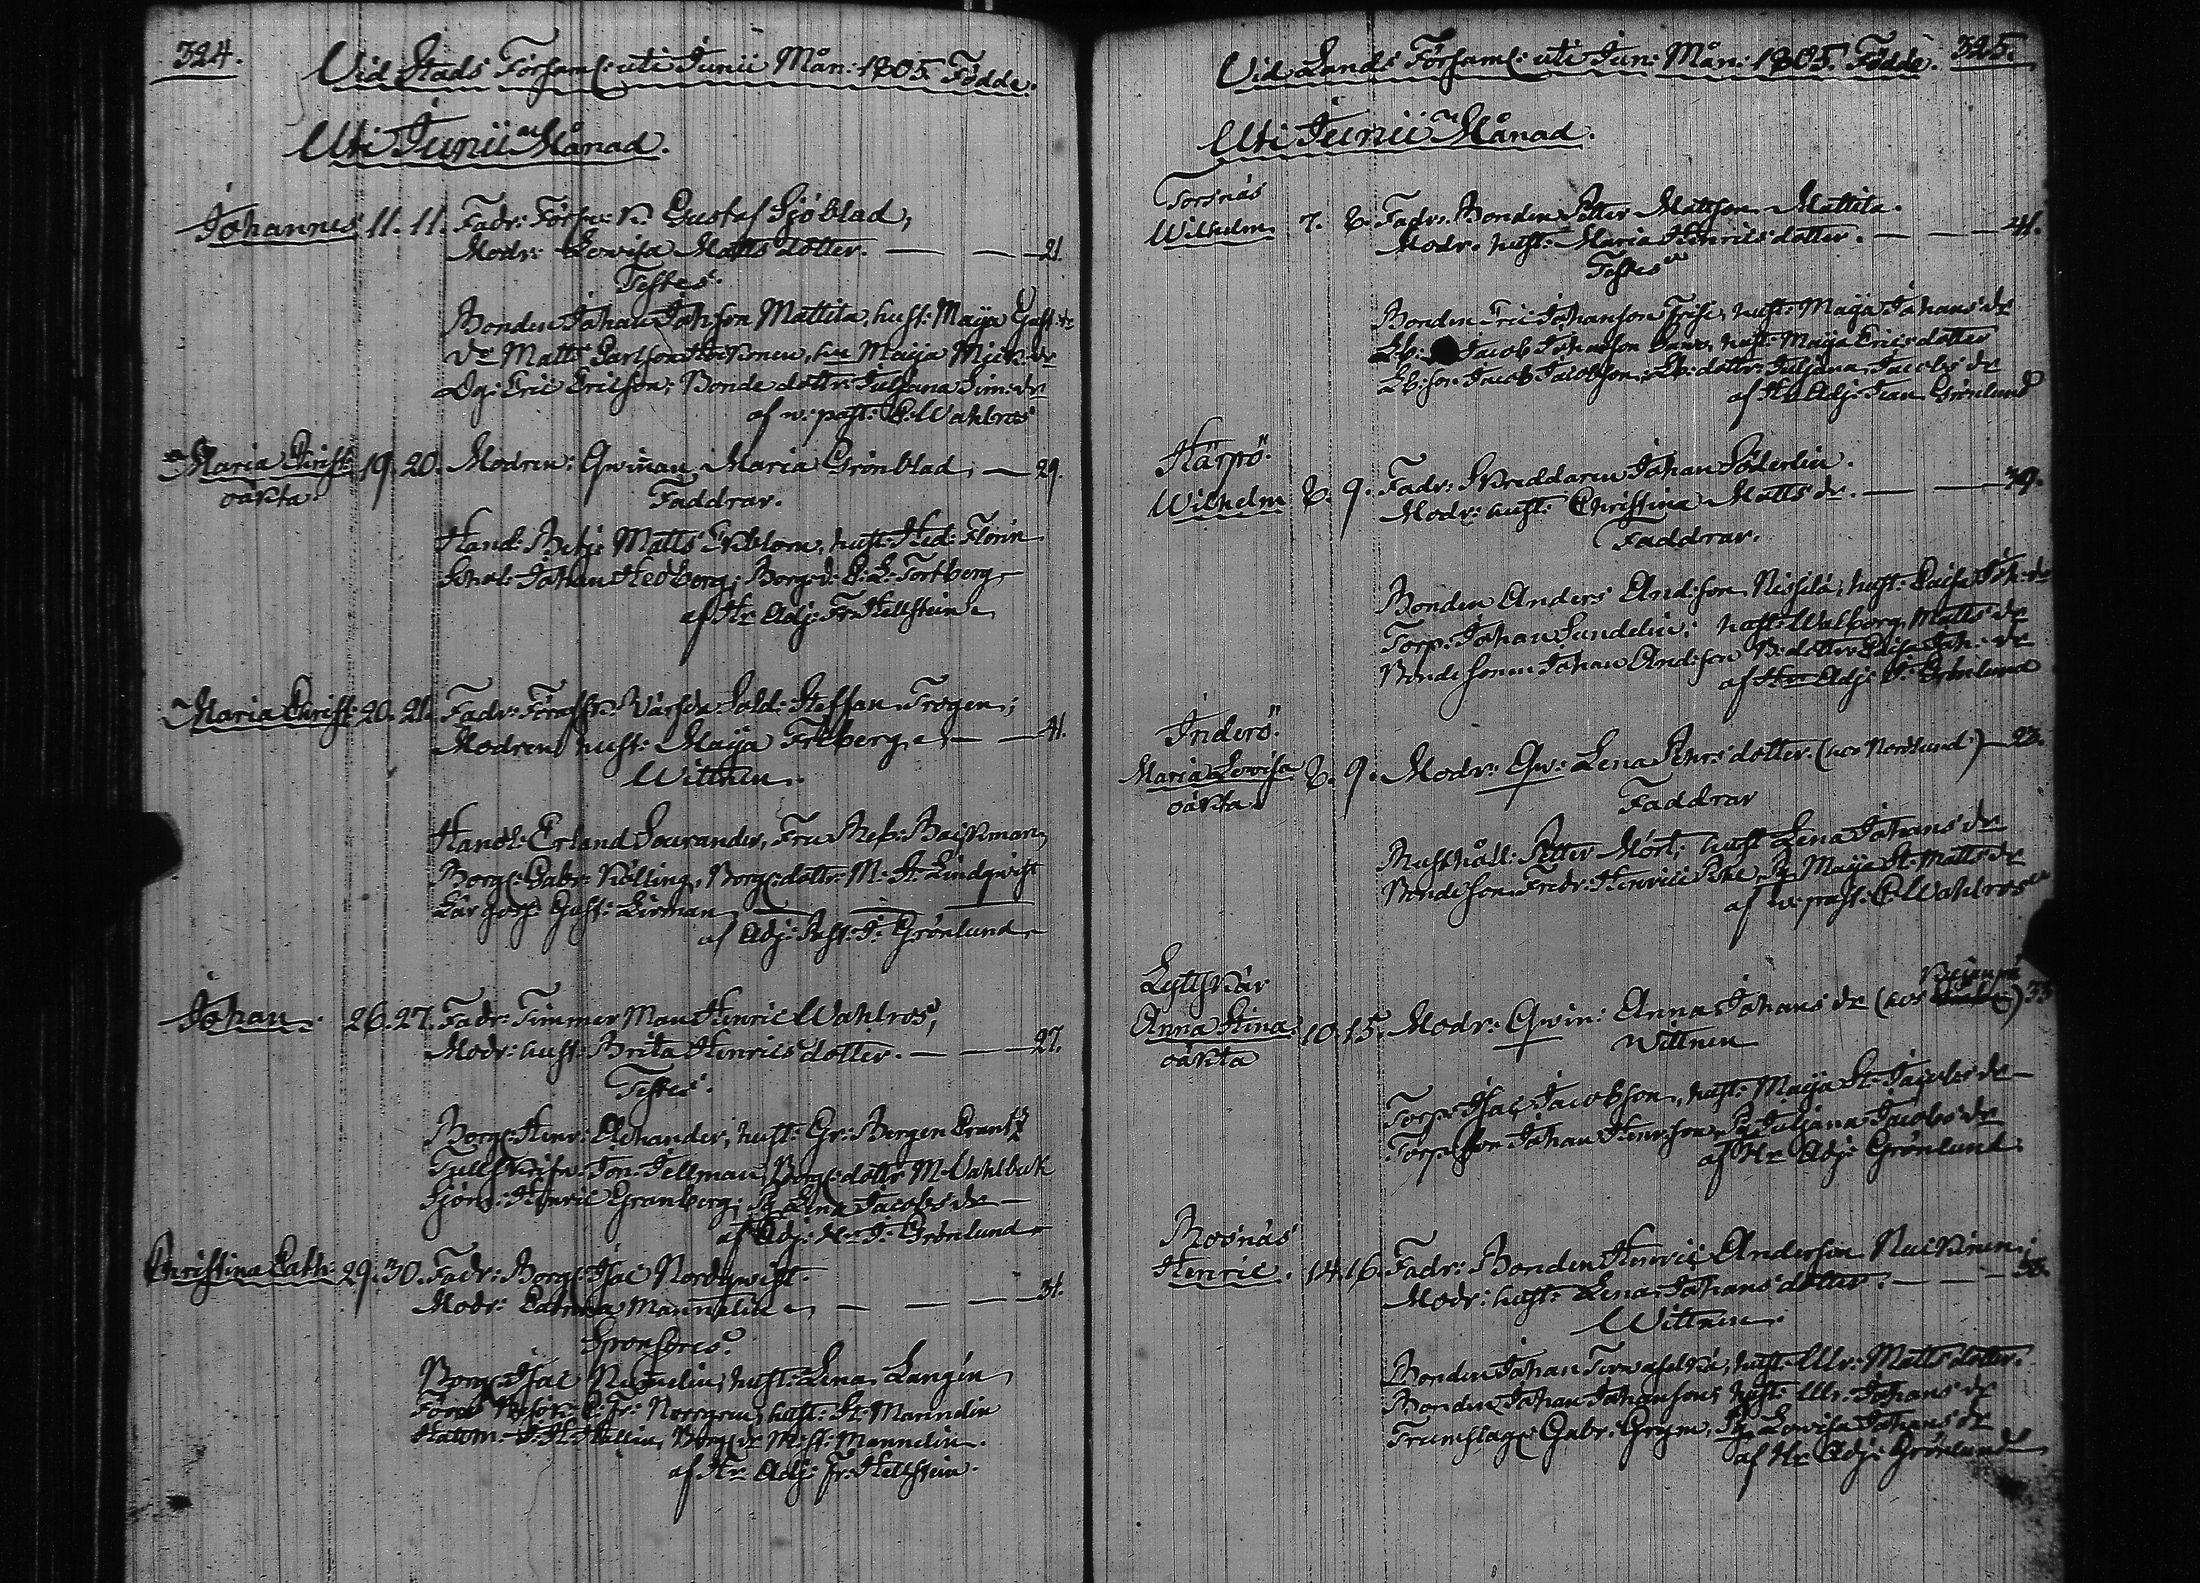 324.
Vid Stads Församl: uti Junii Mån: 1805. Födde.
Uti Junii Månad.
Johannes 11. 11. Fadr: Gustaf Sjöblad,
Modr: Lovisa Matts dotter. — — 21.
Testes.
Bonden Johan Johsson Mattila, hust: Maija
Dr Matts Carlson, Maija
Dg: Eric Ericson; Bonde dottr: Juliana Sim: dr
af v: past: C: Wahlros
Maria Christ: 19. 20. Modren: Qwinnan Maria Grönblad; — 29.
oäkta.
Faddrar.
Hand: Betj: Matts Ekblom, hust: Hed: Florin
Johan Hedberg; Borg: d: Fortberg
af Hr Adj: Fr: Hellstein
Maria Christ: 20. 21. Fadr: Sold: Steffan Trogen;
Modren hust: Maija Friberg — — 41.
Wittnen.
Handl: Erland Sourander, Fru
Borg: Gabr: Kölling, Borg: dotter M: St: Lindqwist
Gust: Lirman
af Adj: Past: J: Grönlund
Johan. 26. 27. Fadr: Timmer Man Henric Wahlros,
Modr: hust: Brita Henrics dotter. — — 27.
Testes.
Borg: Henr: Alchander, hust: Gr: Bergen Crantz
Jon: Tellman, Borg: dottr M: Wahlbek
Sjöm: Henric Granberg; Pg Lena Jacobs dr —
af Adj: Hr J: Grönlund
Christina Cath: 29. 30. Fadr: Borg: Isac Nordqwist.
Modr: Catrina Mannelin — — — 31.
Sponsores.
Borg: Isac hust: Lena Langén
Fr: Norrgren, hust: St: Mannelin
Hallin, Borg: dr M: St: Mannelin.
af Hr Adj: Fr: Hellstein.
Vid Lands Församl: uti Jun: Mån: 1805. Födde. 325.
Uti Junii Månad.
Torsnäs
Wilhelm 7. 8. Fadr: Bonden Petter Mattson Mattila.
Modr: hust: Maria Henrics dotter. — — 41.
Testes
Bonden Eric Johanson Frise, hust: Maija Johans dr
Lb: Jacob Johanson hust: Maija Erics dotter
Lb: son Jacob Jacobson, Lb: dottr: Juliana Jacobs dr
af Hr Adj: Joan Grönlund
Härpö.
Wilhelm 8. 9. Fadr: Skreddaren Johan Söderlin.
Modr: hust: Christina Matts dr. — — 39.
Faddrar.
Bonden Anders Andson Nissilä, hust: Caisa Joh: dr
Torp: Johan Sundelin; hust: Walborg Matts dr
Bonde sonen Johan Andson B: dotter Caisa Joh: dr
af Hr Adj: J: Grönlund
Inderö.
Maria Lovisa 8. 9. Modr: Qw: Lena Pehrs dotter. (hos Nordlund) — 23.
oäkta.
Faddrar
Rusthåll: Petter Mört; hust Lena Johans dr
Bonde son Fredr: Henrici Pg Maija St: Matts dr
af v: past: C: Wahlros
Lyttskär
Anna Stina 10. 15. Modr: Qwin: Anna Johans dr (hos 33
oäkta
Wittnen
Torp: Isac Jacobson, hust: Maija St: Jacobs dr —
Torp: son Johan Henrson, Pg Juliana Jacobs dr
af Hr Adj: Grönlund.
Bosnäs
Henric. 14. 16. Fadr: Bonden Henric Anderson Nuckinen;
Modr: hust: Lena Johans dotter. — — — 38.
Wittnen.
Bonden Johan hust: Ulr: Matts dotter.
Bonden Johan Johanson, hust: Ulr: Johans dr
Trumslag: Gabr: Grym, Pg Lovisa Johans dr
af Hr Adj: Grönlund